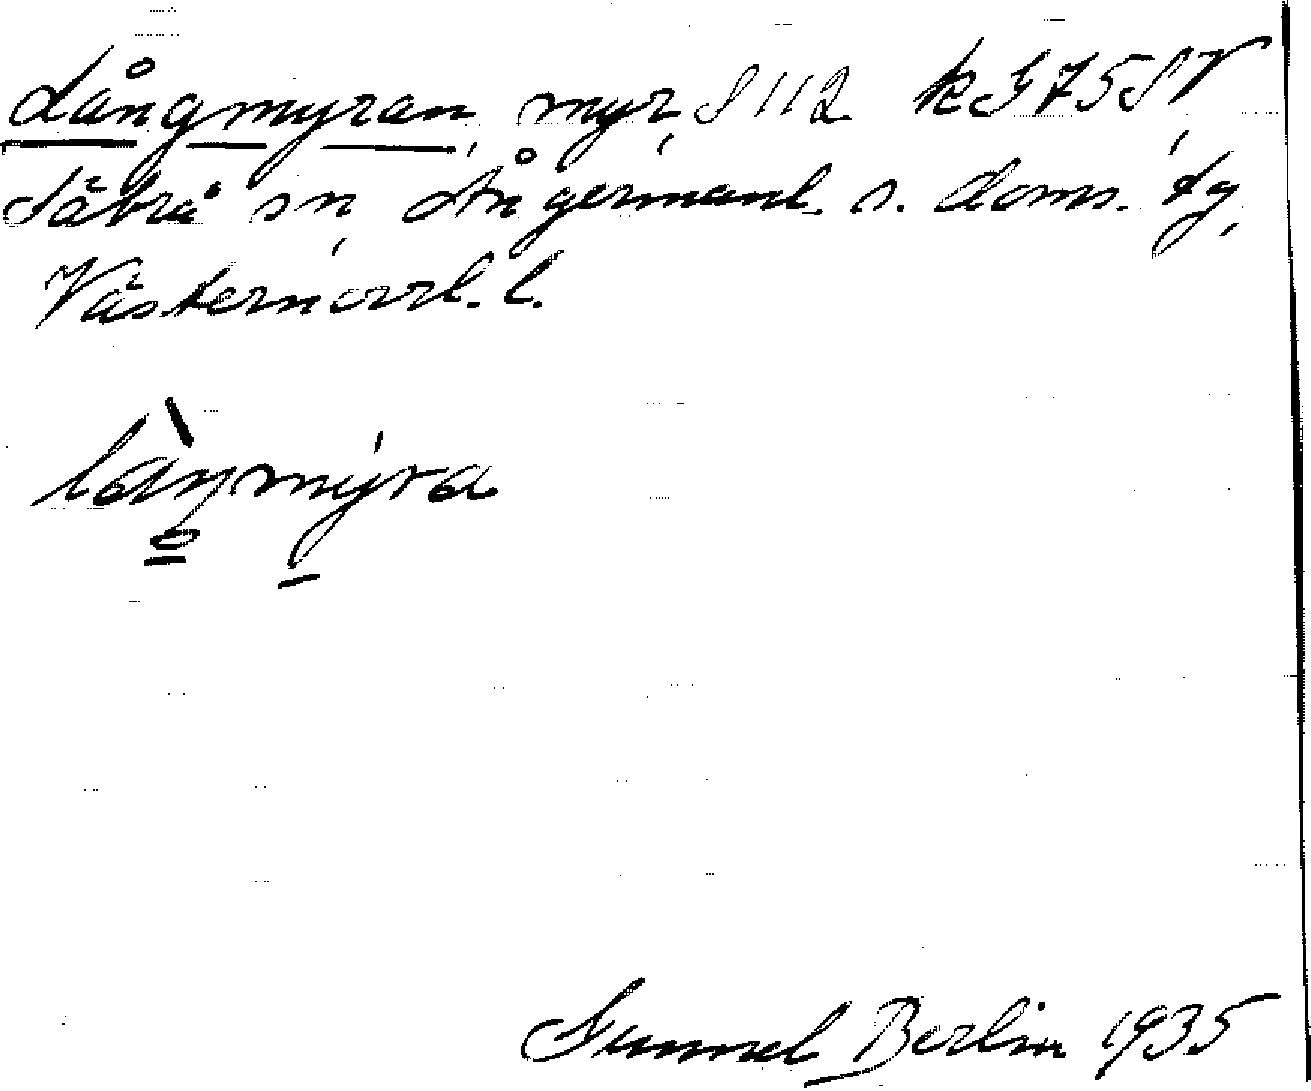 Långmyran, myr, S 112 k 3f 75 SV
Säbrå sn, Ångermanl. s. doms. tg,
Västernorrl. l.
làŋmýra
Gunnel Berlin 1935